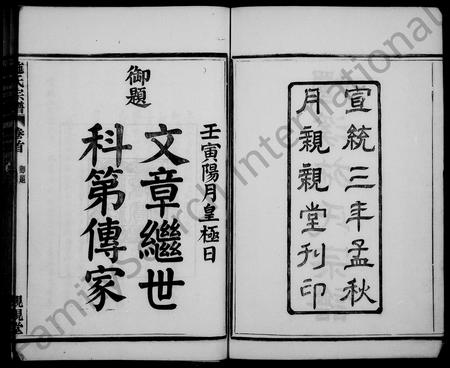 宣統三年孟秋
月親親堂刊印
壬寅陽月皇極日
御題
文章繼世
科第傳家
施氏宗譜
卷首
御題
親親堂
FamilySearch International